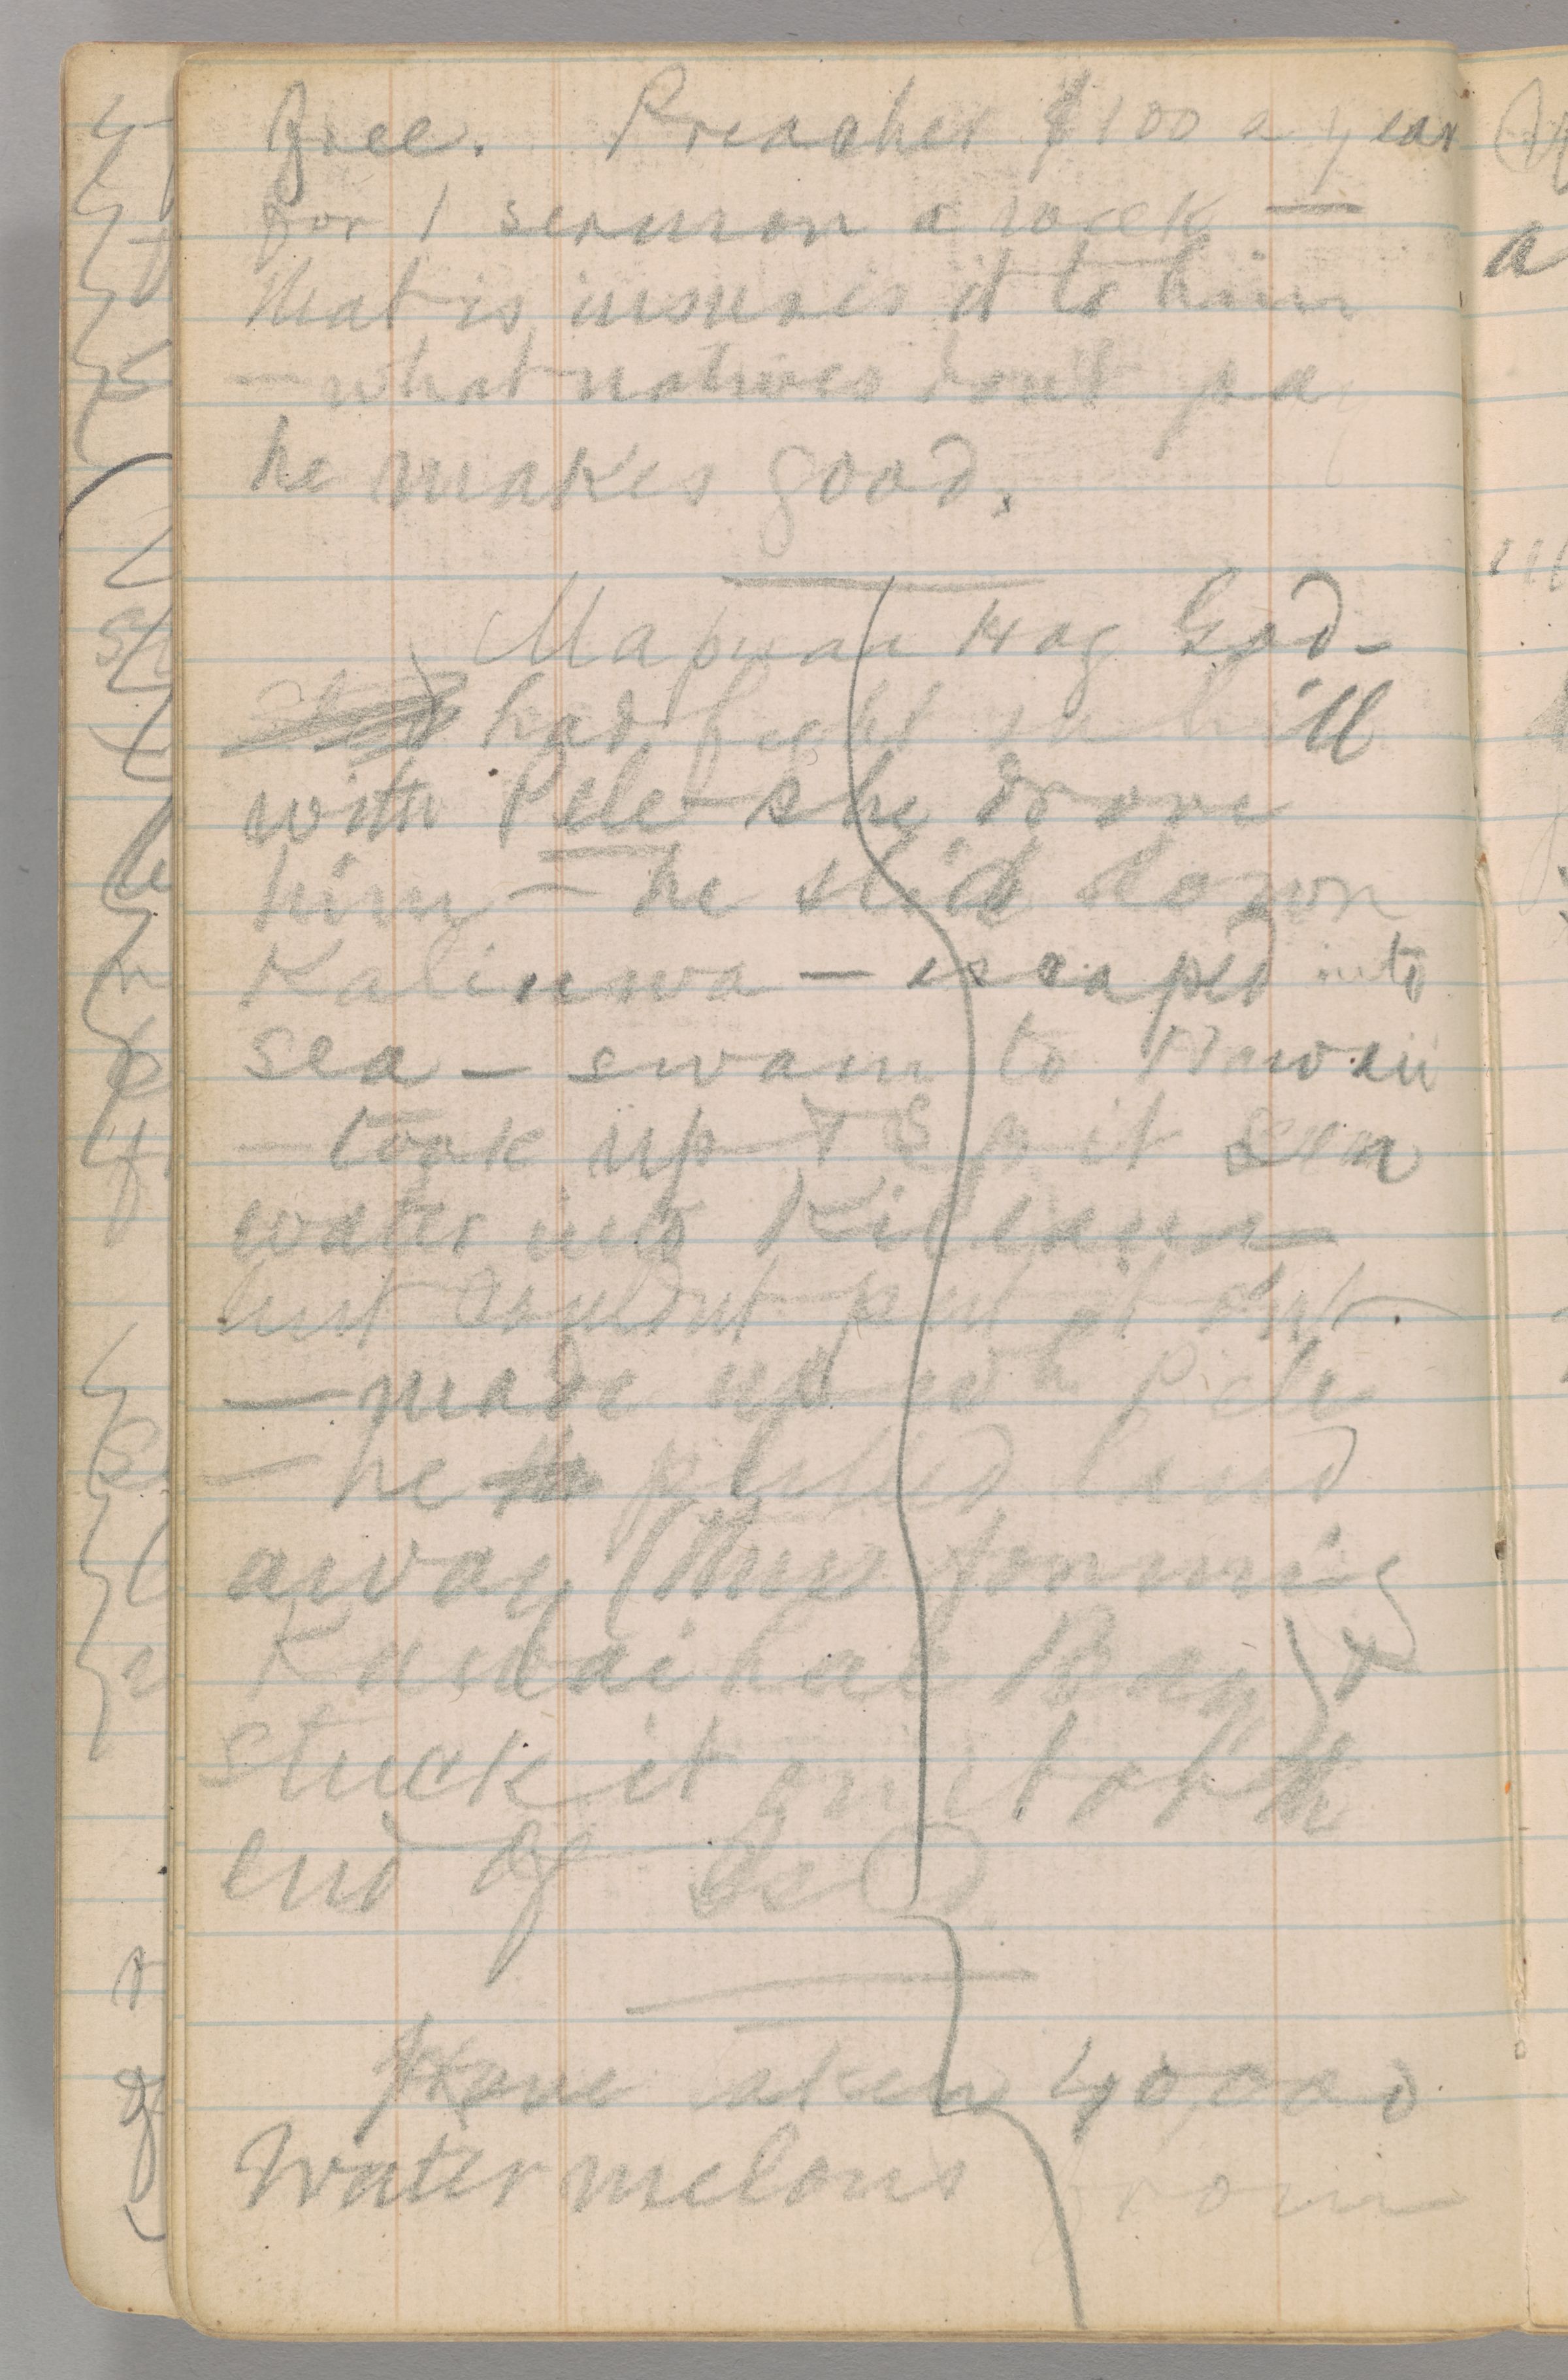 free. Preacher $100 a year
for 1 sermon a week —
that is insures it to him
— what natives dont pay
he makes good.
Mapuaa Hog God-
had fight on hill
with Pele she drove
him — he slid down
Kaliuwa — escaped into
sea — swam to Hawaii
— took up & spit sea
water into Kileaua—
but couldnt put it out.
— made up wh Pele
— he pushed land
away (thus forming
Kawaihae Bay) &
stuck it onto
end of
Have taken 40,000
Water melons from